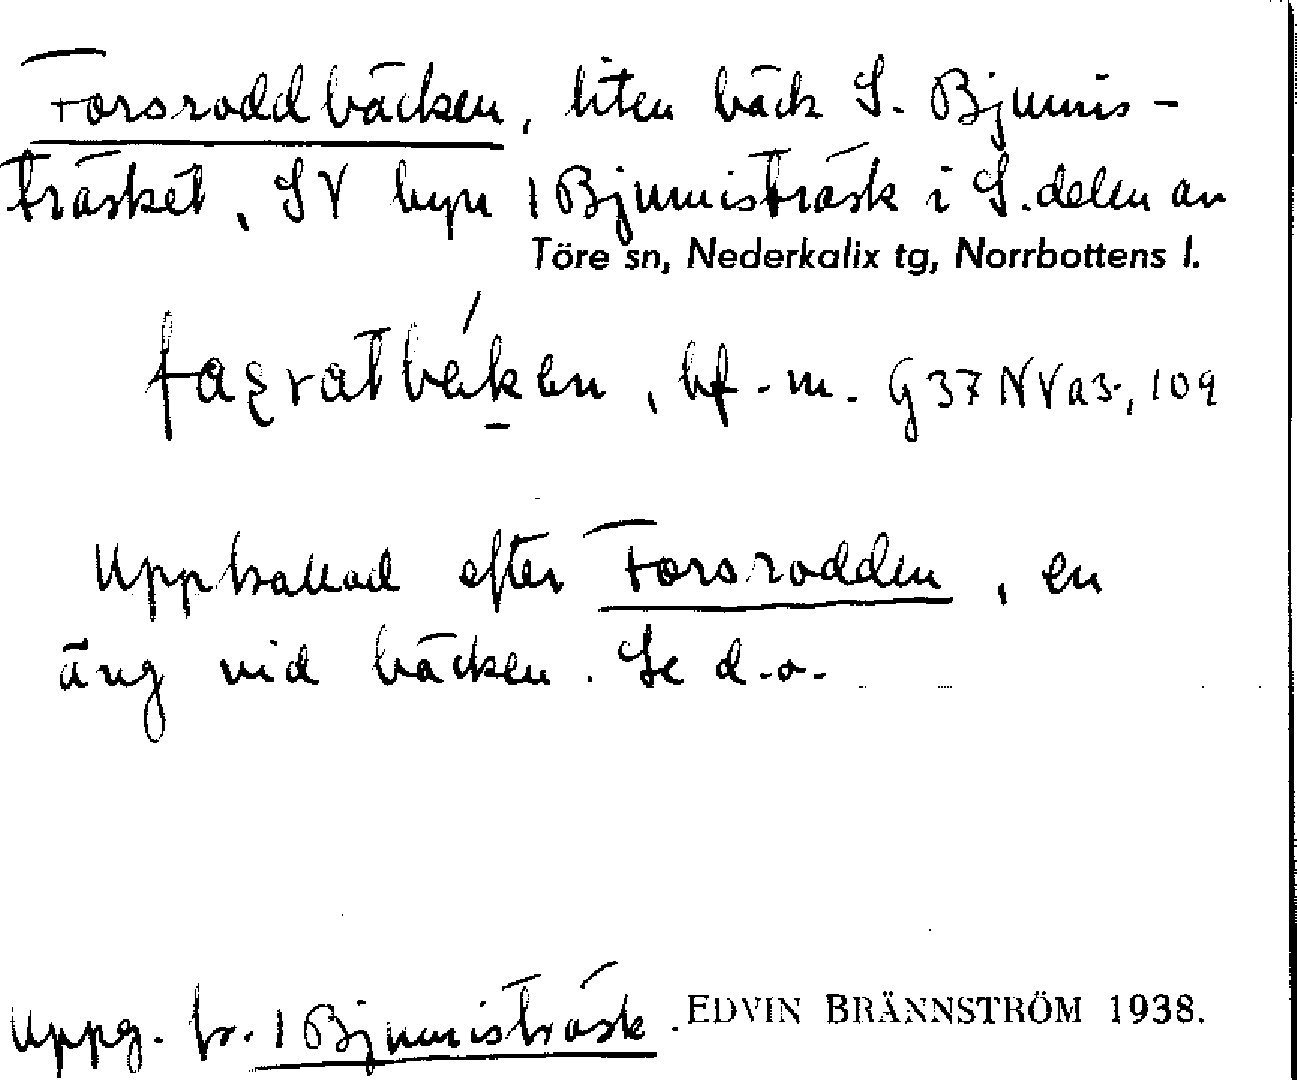 Forsroddbäcken, liten bäck S. Bjumis-
träsket, SV byn 1 Bjumisträsk i S. delen av
Töre sn, Nederkalix tg, Norrbottens l.
bf. m. G37NVa5, 109
Uppkallad efter Forsrodden, en
äng vid bäcken. Se d.o.
Uppg. fr. 1 Bjumisträsk. EDVIN BRÄNNSTRÖM 1938.